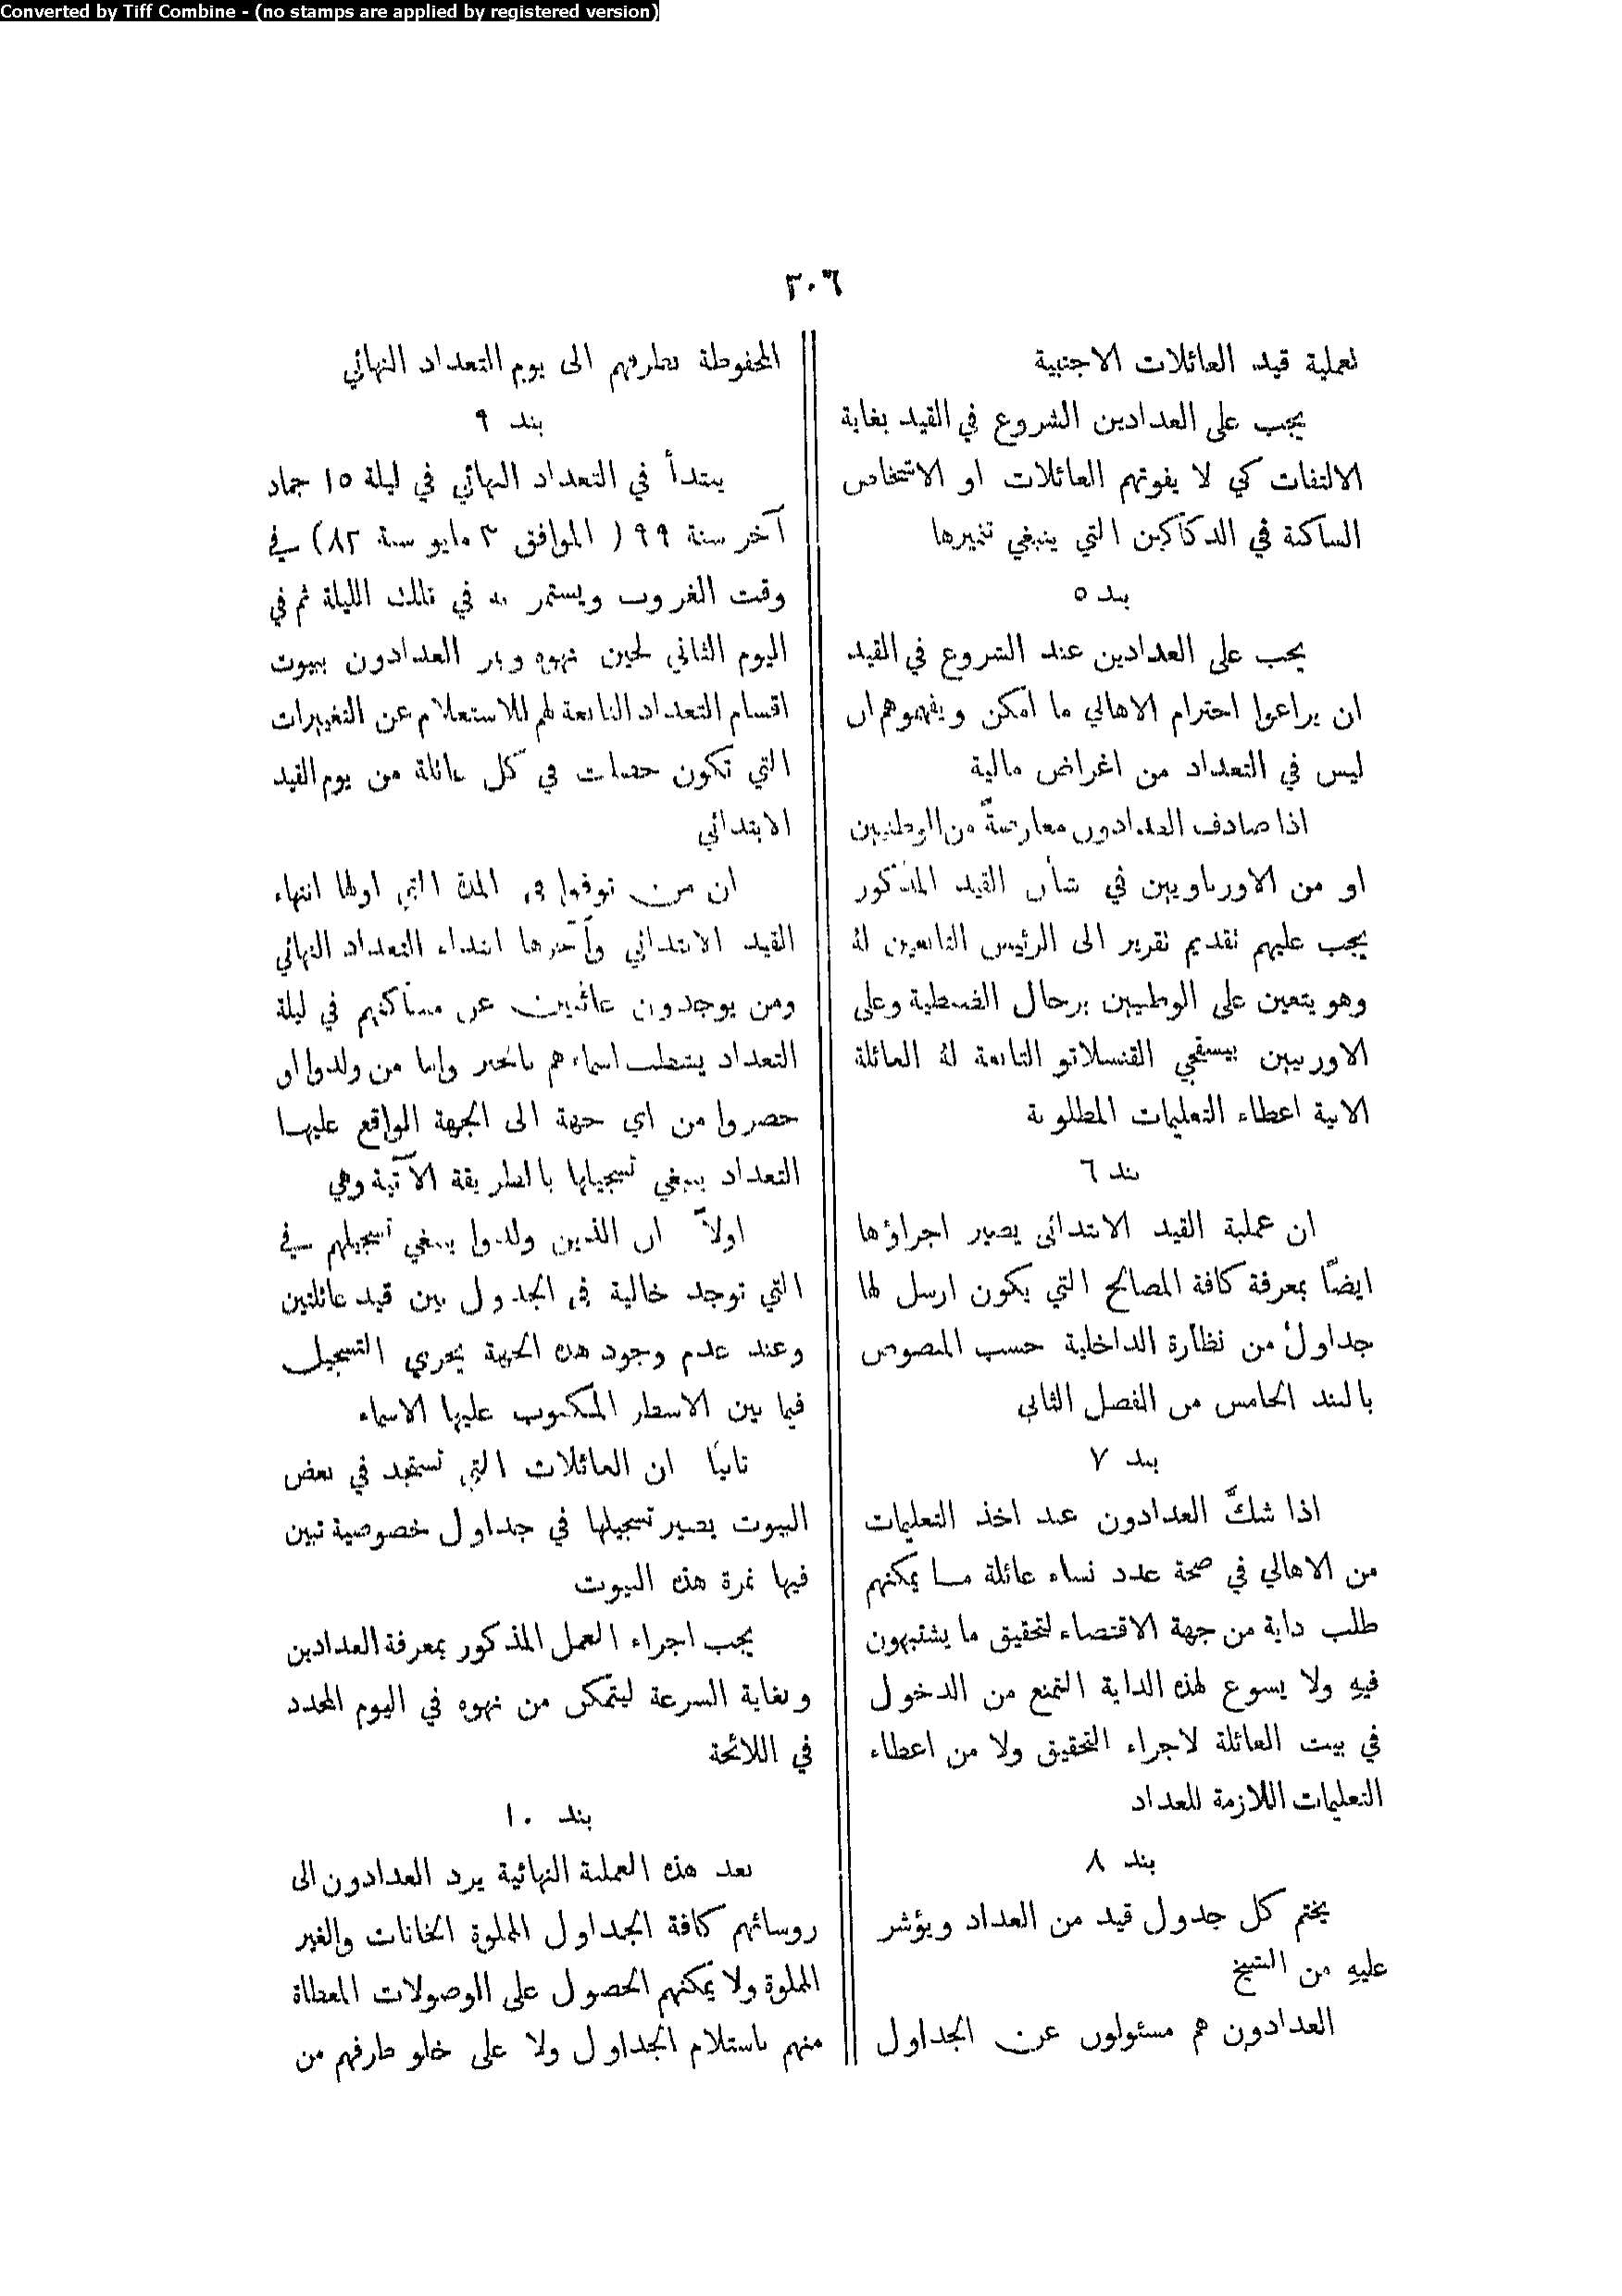 Converted by Tiff Combine - (no stamps are applied by registered version)
٣٠٦
لعملية قيد العائلات الاجنبية
يجب على العدادين الشروع في القيد بغاية
الالتفات كي لا يفوتهم العائلات او الاشخاص
الساكنة في الدكاكين التي ينبغي تنميرها
بند ٥
يجب على العدادين عند الشروع في القيد
ان يراعوا احترام الاهالي ما امكن ويفهموهم ان
ليس في التعداد من اغراض مالية
اذا صادف العدادون معارضةً من الوطنيين
او من الاورباويين في شأن القيد المذكور
يجب عليهم تقديم تقرير الى الرئيس التابعين لهُ
وهو يتعين على الوطنيين برجال الضبطية وعلى
الاوربيين بيسقجي القنسلاتو التابعة لهُ العائلة
الابية اعطاء التعليمات المطلوبة
بند ٦
ان عملية القيد الابتدائي يصير اجراؤها
ايضاً بمعرفة كافة المصالح التي يكون ارسل لها
جداولٌ من نظارة الداخلية حسب المنصوص
بالبند الخامس من الفصل الثاني
بند ٧
اذا شكَّ العدادون عند اخذ التعليمات
من الاهالي في صحة عدد نساء عائلة ما يمكنهم
طلب داية من جهة الاقتضاء لتحقيق ما يشتبهون
فيهِ ولا يسوع لهذه الداية التمنع من الدخول
في بيت العائلة لاجراء التحقيق ولا من اعطاء
التعليمات اللازمة للعداد
بند ٨
يختم كل جدول قيد من العداد ويؤشر
عليهِ من الشيخ
العدادون هم مسئولون عن الجداول
المحفوظة بطرفهم الى يوم التعداد النهائي
بند ٩
يبتدأ في التعداد النهائي في ليلة ١٥ جماد
آخر سنة ٩٩ ( الموافق ٣ مايو سنة ٨٢) في
وقت الغروب ويستمر به في تلك الليلة ثم في
اليوم الثاني لحين نهوه ويمر العدادون ببيوت
اقسام التعداد التابعة لهم للاستعلام عن التغييرات
التي تكون حصلت في كل عائلة من يوم القيد
الابتدائي
ان من توفوا في المدة التي اولها انتهاء
القيد الابتدائي وآخرها ابتداء التعداد النهائي
ومن يوجدون غائبين عن مساكنهم في ليلة
التعداد يشطب اسماءهم بالحبر واما من ولدوا او
حضروا من اي جهة الى الجهة الواقع عليها
التعداد ينبغي تسجيلها بالطريقة الآتية وهي
اولاً ان الذين ولدوا ينبغي تسجيلهم في
التي توجد خالية في الجدول بين قيد عائلتين
وعند عدم وجود هذه الجهة يجري التسجيل
فيما بين الاسطر المكتوب عليها الاسماء
ثانياً ان العائلات التي تستجد في بعض
البيوت يصير تسجيلها في جداول خصوصية تبين
فيها نمرة هذه البيوت
يجب اجراء العمل المذكور بمعرفة العدادين
وبغاية السرعة ليتمكن من نهوه في اليوم المحدد
في اللائحة
بند ١٠
بعد هذه العملية النهائية يرد العدادون الى
روسائهم كافة الجداول المملوة الخانات والغير
المملوة ولا يمكنهم الحصول على الوصولات المعطاة
منهم باستلام الجداول ولا على خلو طرفهم من